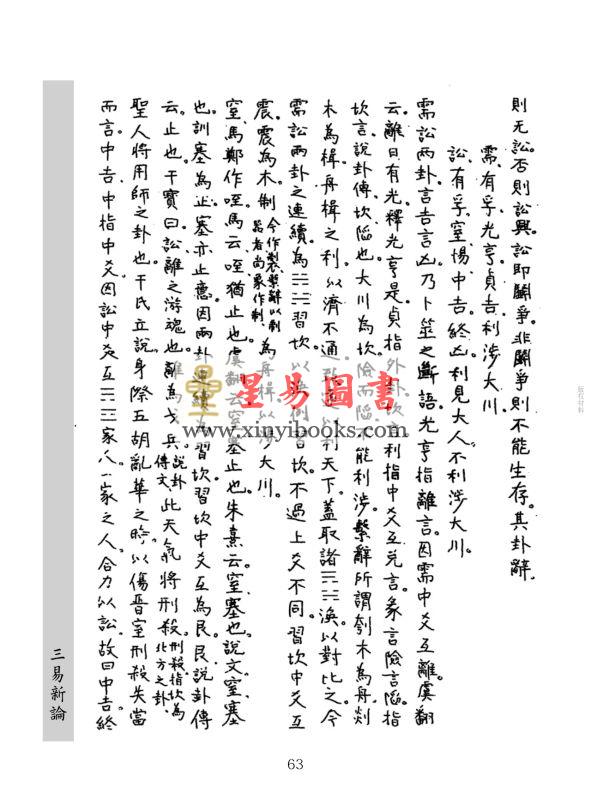 則无訟。否則訟興。訟即鬭爭。非鬭爭則不能生存。其卦辭。
需。有孚。光亨。貞吉。利涉大川。
訟。有孚。窒。惕。中吉。終凶。利見大人。不利涉大川。
需訟兩卦。言吉言凶。乃卜筮之斷語。光亨指離言。因需中爻互離。虞翻
云。離日有光。釋光亨是。貞指外卦坎。利指中爻互兑言。彖言險言陷。指
坎言。說卦傳。坎陷也。大川為坎。險而陷。能利涉。繫辭所謂刳木為舟。剡
木為楫。舟楫之利。以濟不通。致遠以利天下。蓋取諸渙。以對比之。今
需訟兩卦之連續。為習坎。以渙例習坎。不過上爻不同。習坎中爻互
震。震為木。制今作製。繫辭以制器者尚象作制。為舟楫以涉大川。
窒。馬鄭作咥。馬云。咥猶止也。虞翻云。窒塞止也。朱熹云。窒塞也。說文。窒塞
也。訓塞為止。塞亦止意。因兩卦連續為習坎。習坎中爻互為艮。艮說卦傳
云。止也。干寶曰。訟。離之游魂也。離為戈兵說卦傳文。此天氣將刑殺。刑殺指坎為北方之卦。
聖人將用師之卦也。干氏立說。身際五胡亂華之時。以傷晉室刑殺失當
而言。中吉。中指中爻。因訟中爻互家人。家之人。合力以訟。故曰中吉。終
三易新論
版权材料
星易圖書
www.xinyibooks.com
63